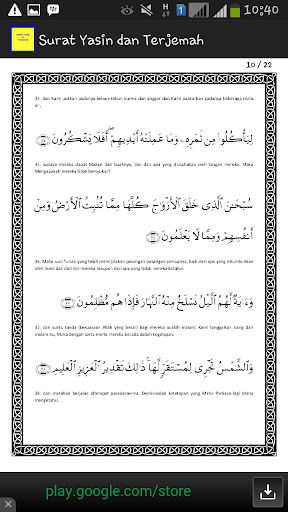 10:40
Surat Yasin dan Terjemah
10 / 22
34. dan Kami jadikan padanya kebun-kebun kurma dan anggur dan Kami pancarkan padanya beberapa mata
air,
لِيَأْكُلُوا۟ مِن ثَمَرِهِۦ وَمَا عَمِلَتْهُ أَيْدِيهِمْ ۖ أَفَلَا يَشْكُرُونَ ﴿٣٥﴾
35. supaya mereka dapat Makan dari buahnya, dan dari apa yang diusahakan oleh tangan mereka. Maka
Mengapakah mereka tidak bersyukur?
سُبْحَٰنَ ٱلَّذِى خَلَقَ ٱلْأَزْوَٰجَ كُلَّهَا مِمَّا تُنۢبِتُ ٱلْأَرْضُ وَمِنْ
أَنفُسِهِمْ وَمِمَّا لَا يَعْلَمُونَ ﴿٣٦﴾
36. Maha suci Tuhan yang telah menciptakan pasangan-pasangan semuanya, baik dari apa yang ditumbuhkan
oleh bumi dan dari diri mereka maupun dari apa yang tidak mereka ketahui.
وَءَايَةٌ لَّهُمُ ٱلَّيْلُ نَسْلَخُ مِنْهُ ٱلنَّهَارَ فَإِذَا هُم مُّظْلِمُونَ ﴿٣٧﴾
37. dan suatu tanda (kekuasaan Allah yang besar) bagi mereka adalah malam; Kami tanggalkan siang dari
malam itu, Maka dengan serta merta mereka berada dalam kegelapan.
وَٱلشَّمْسُ تَجْرِى لِمُسْتَقَرٍّ لَّهَا ۚ ذَٰلِكَ تَقْدِيرُ ٱلْعَزِيزِ ٱلْعَلِيمِ ﴿٣٨﴾
38. dan matahari berjalan ditempat peredarannya. Demikianlah ketetapan yang Maha Perkasa lagi Maha
mengetahui.
play.google.com/store